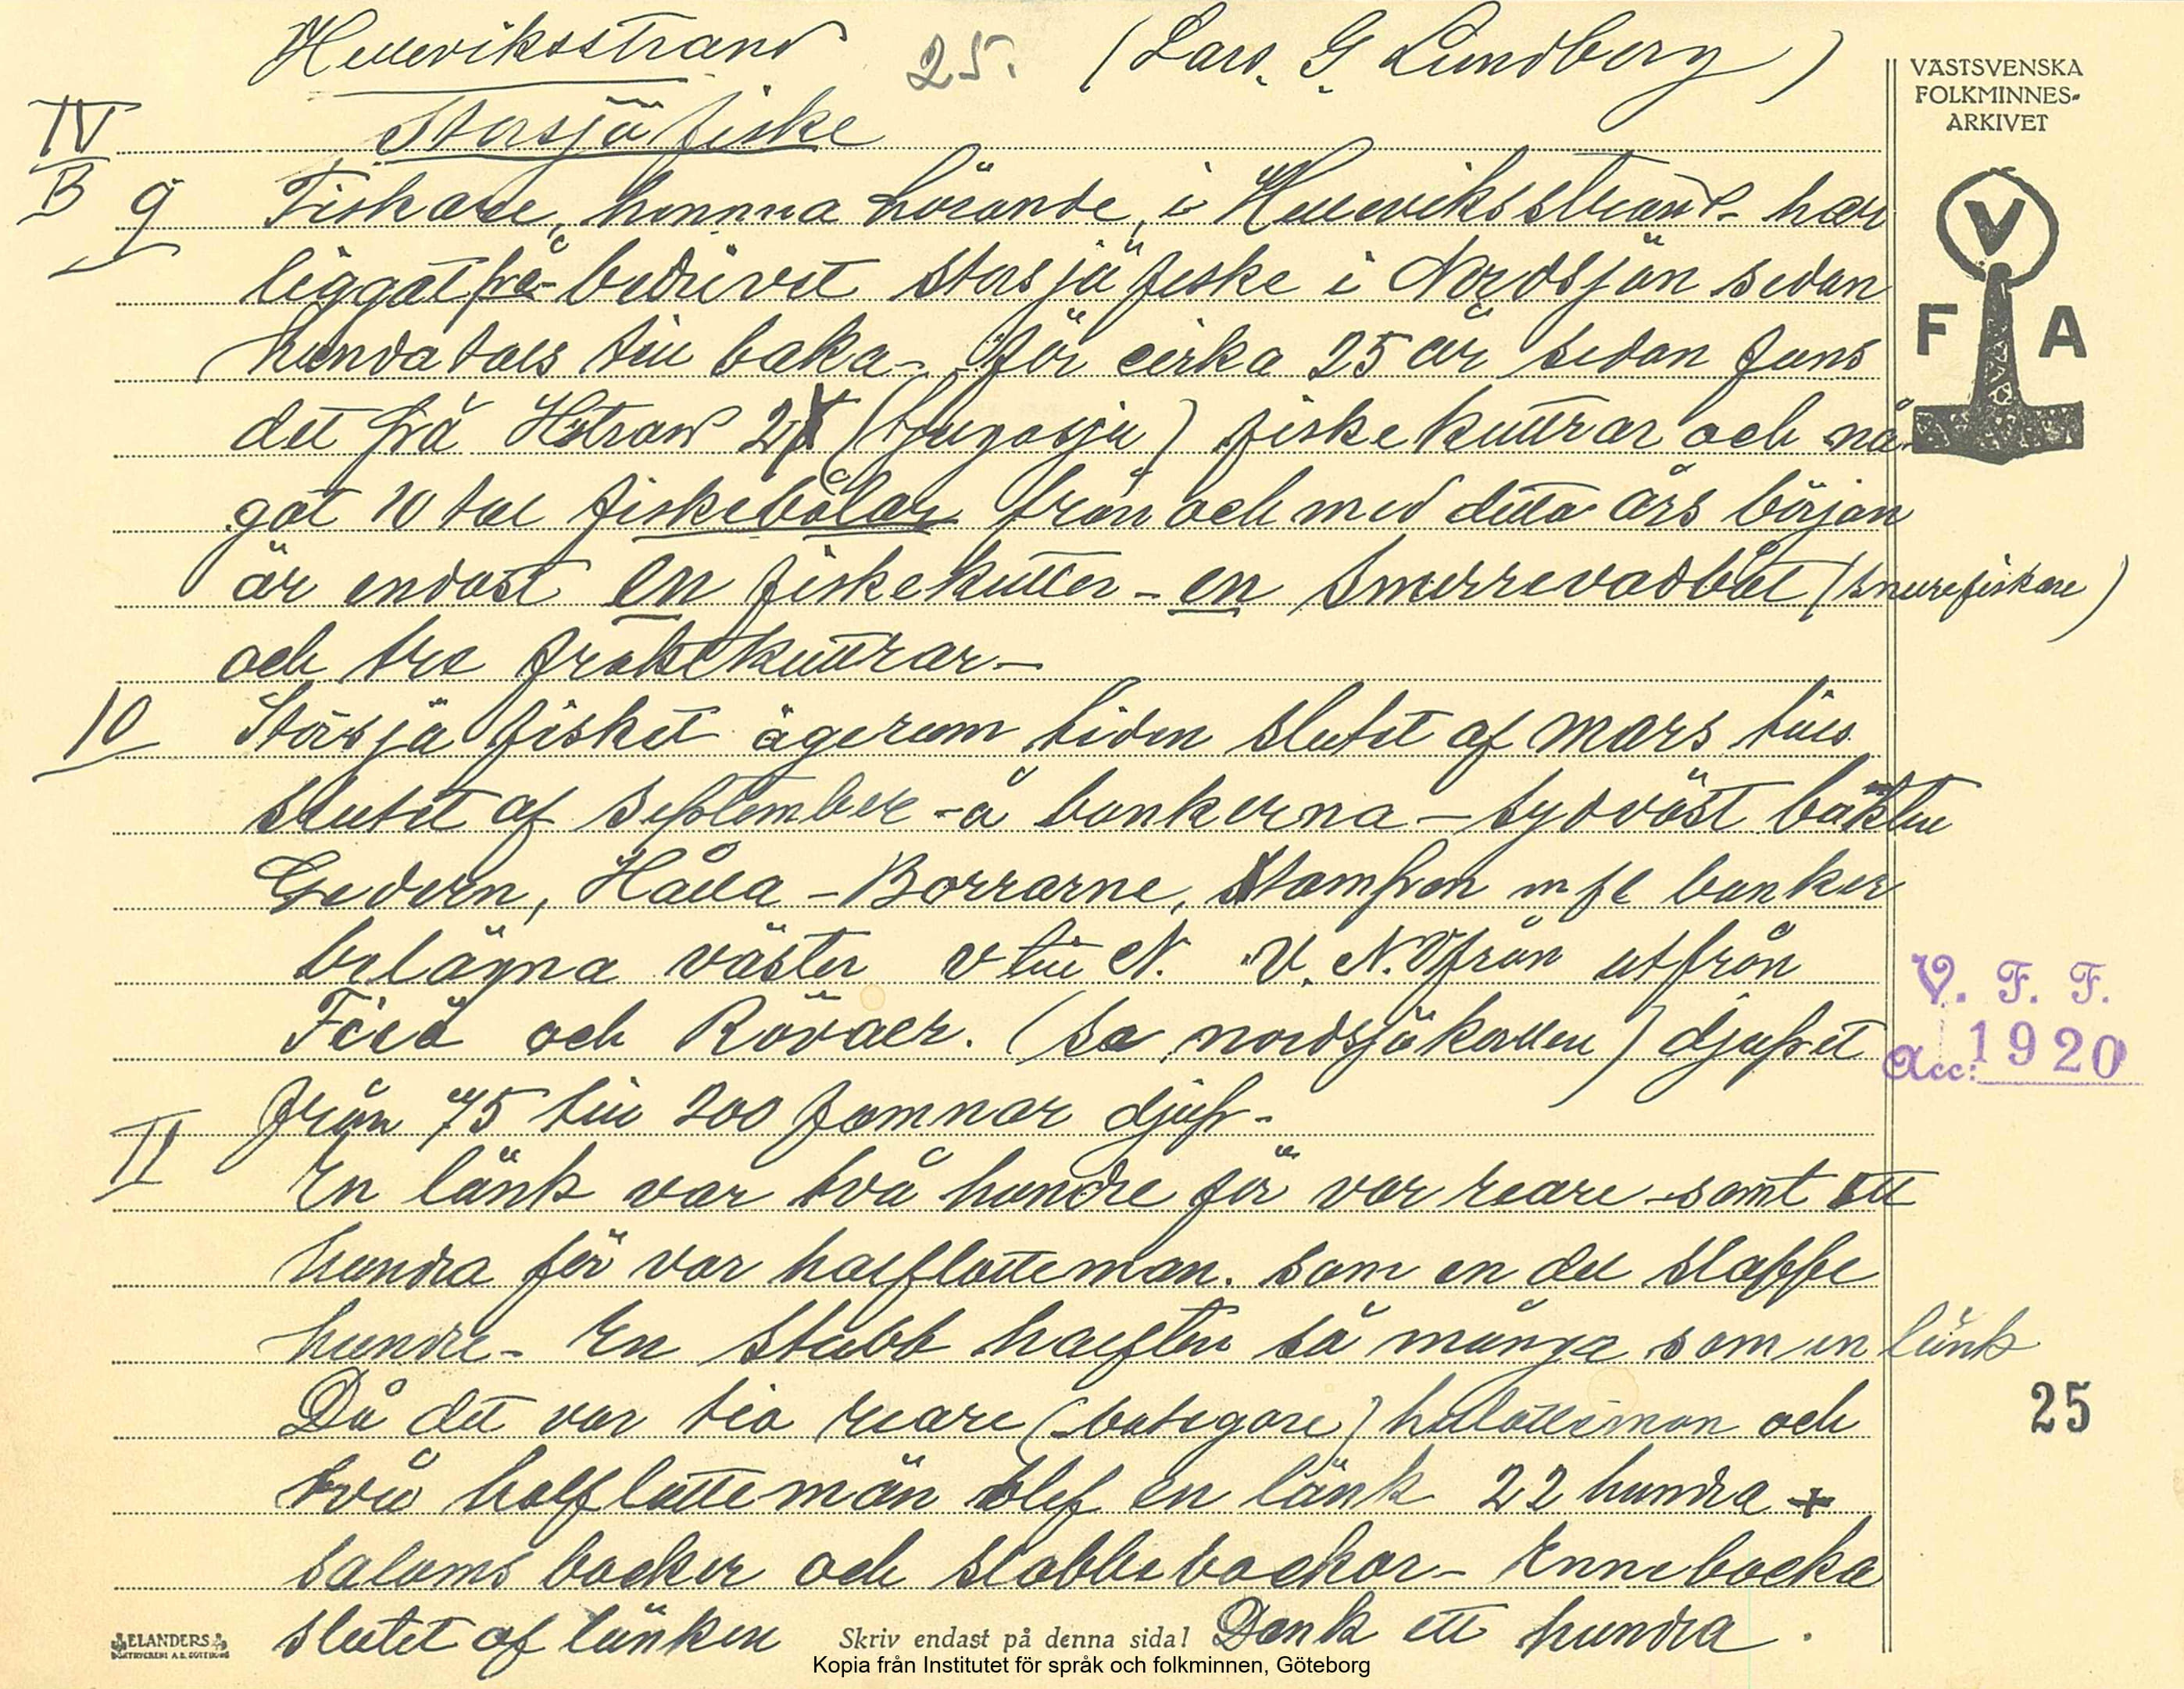 Helleviksstrand 25. (Lars. G Lundberg)
VÄSTSVENSKA
FOLKMINNES-
ARKIVET
IV
Storsjöfiske
B 9 Fiskare, hemma hörande, i Helleviksstrand- har
V
F A
liggat på bedrivet storsjöfiske i Nordsjön sedan
hundatals till baka- för cirka 25 år sedan funs
det frå Hstrand 21 (tjugosju) fiskekuttrar och nå-
got 10 tal fiskebåtar från och med detta års början
är endast en fiskekutter - en Snurrevadbåt (snurefiskare)
och tre fraktkuttrar-
10 Storsjöfisket ägerum tiden slutet af mars till
slutet af September - å bankerna - sydväst
Gedern, Hålla - Borrarne, Stampen m fl banker
belägna väster v till N. V. N. V från utfrån
V. F. F.
och Röväer. (sa nordsjökallen) djupet
Acc: 1920
från 75 till 200 famnar djup-
11
En länk var två hundre för var reare - samt ett
hundra för var halflotteman. som en del slappe
hundre- En stubb hälften så många som en länk
Då det var tio reare (båtegare) och
25
två halflottemän blef en länk 22 hundra +
salams backer och slabbebackar- Ennebacka
slutet af länken Dank ett hundra.
ELANDERS
BOKTRYCKERI A.B. GÖTEBORG
Skriv endast på denna sida!
Kopia från Institutet för språk och folkminnen, Göteborg